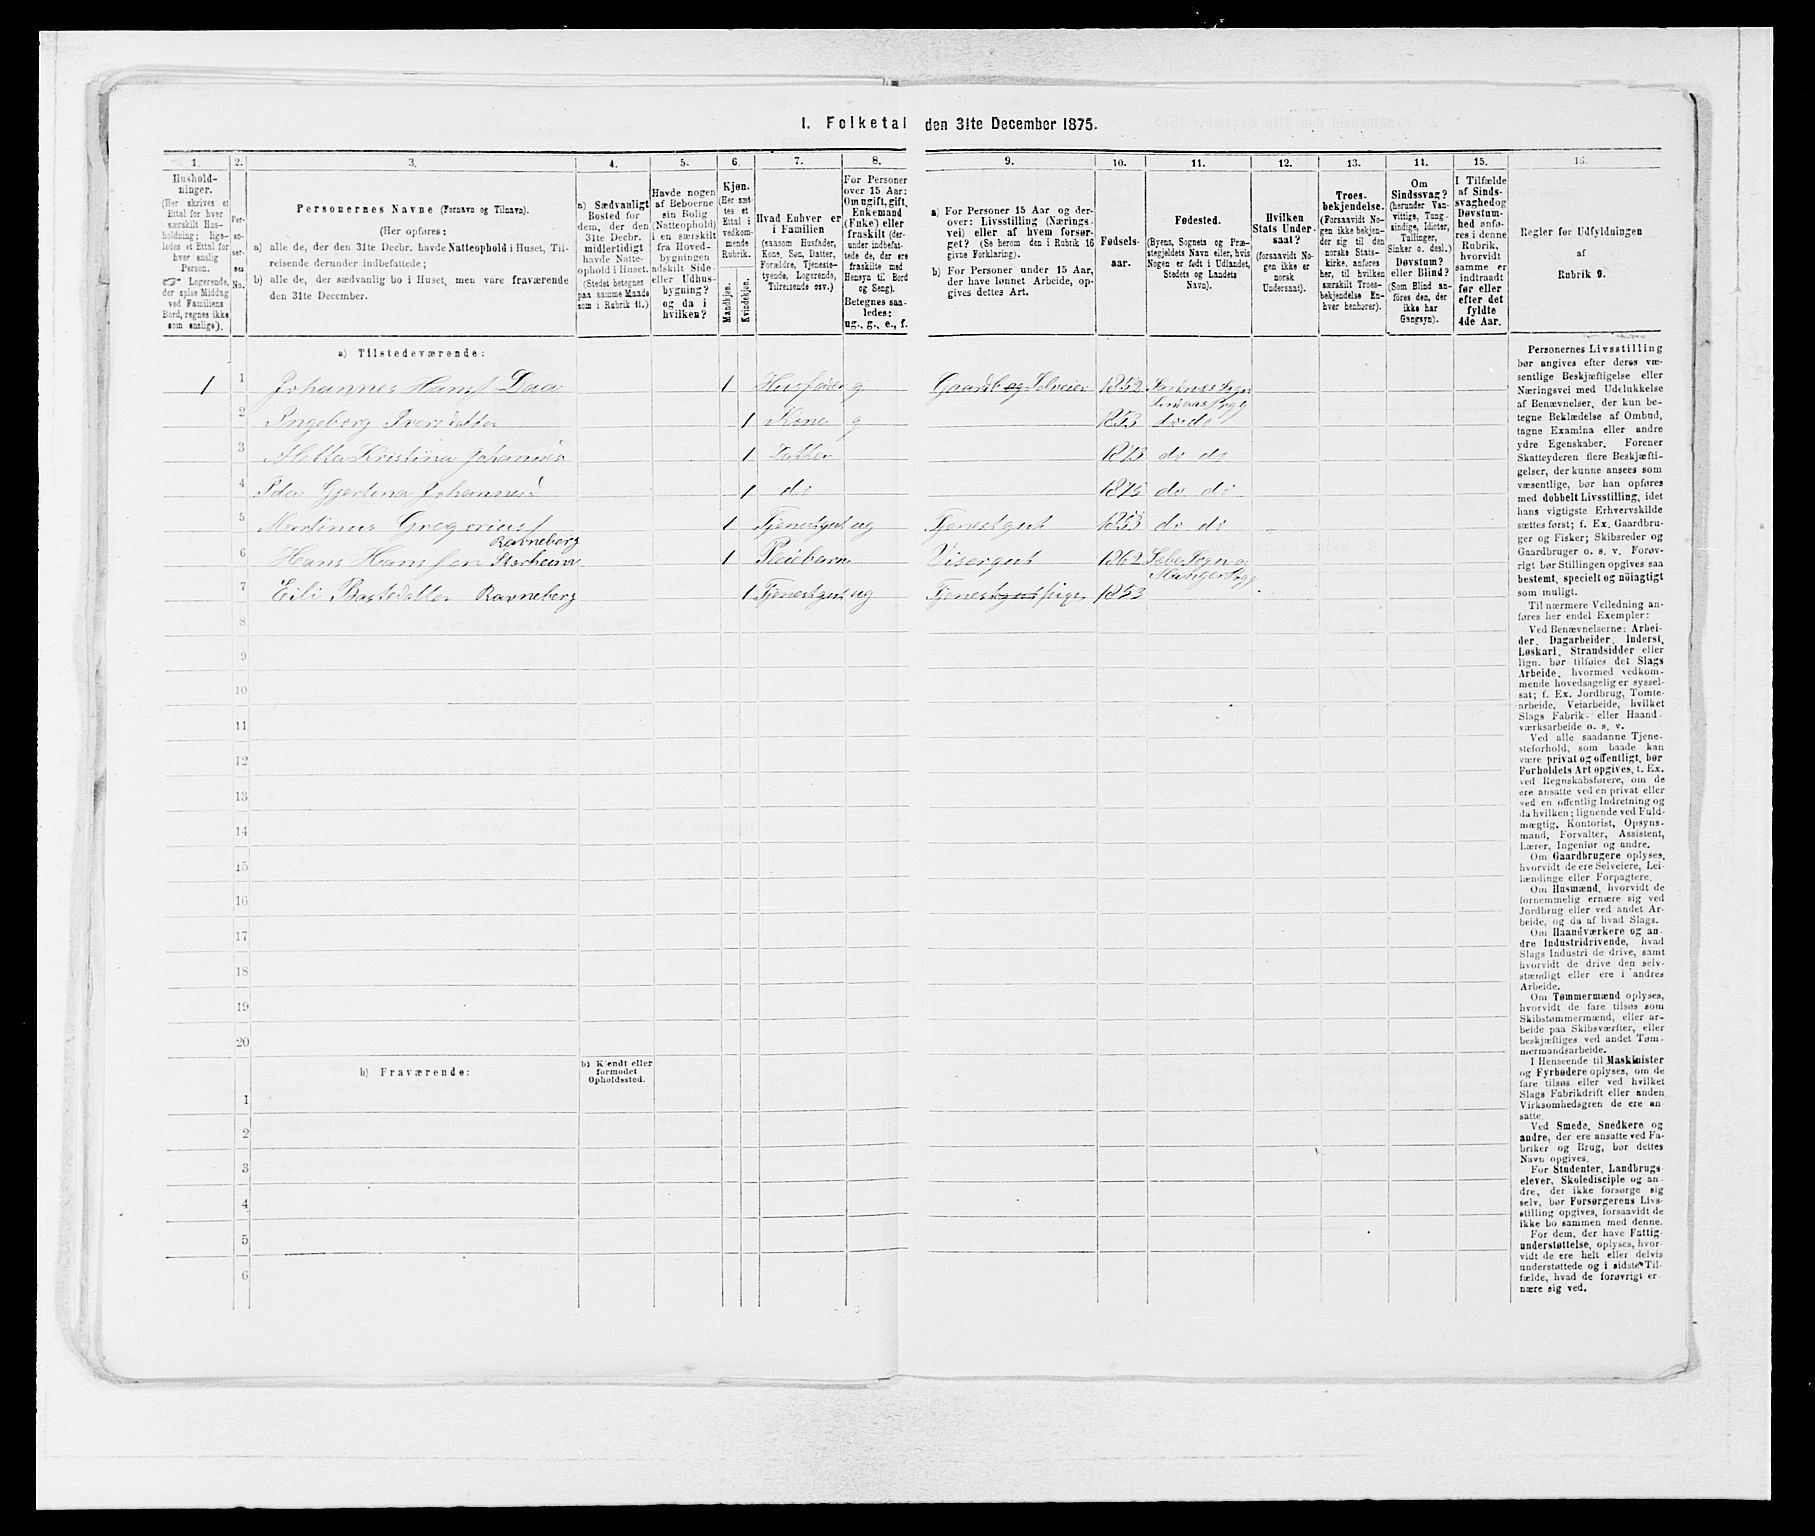 1. Folketal den 31te December 1875.
1. 2. 3. 4. 5. 6. 7. 8. 9. 10. 11. 12. 13. 14. 15. 16.
Hushold-
ninger.
(Her skrives et
Ettal for hver
særskilt Hus-
holdning; lige-
ledes et Ettal for
hver enslig
Person.
☞ Logerende,
der spise Middag
ved Familiens
Bord, regnes ikke
som enslige).
Per-
so-
ner-
nes
No.
Personernes Navne (Fornavn og Tilnavn).
(Her opføres:
a) alle de, der den 31te Decbr. havde Natteophold i Huset, Til-
reisende derunder indbefattede;
b) alle de, der sædvanlig bo i Huset, men vare fraværende
den 31te December.
a) Sædvanligt
Bosted for
dem, der den
31te Decbr.
midlertidigt
havde Natte-
ophold i Huset.
(Stedet betegnes
paa samme Maade
som i Rubrik 11.)
Havde nogen
af Beboerne
sin Bolig
(Natteophold)
i en særskilt
fra Hoved-
bygningen
adskilt Side-
eller Udhus-
bygning?
og da i
hvilken?
Kjøn.
(Her sæt-
tes et
Ettal i
vedkom-
mende
Rubrik.
Mandkjøn.
Kvindekjøn.
Hvad Enhver er
i Familien
(saasom Husfader,
Kone, Søn, Datter,
Forældre, Tjeneste-
tyende, Logerende,
Tilreisende osv.)
For Personer
over 15 Aar:
Om ugift, gift,
Enkemand
(Enke) eller
fraskilt (der-
under indbefat-
tede de, der ere
fraskilte med
Hensyn til Bord
og Seng).
Betegnes saa-
ledes:
ug., g., e., f.
a) For Personer 15 Aar og der-
over: Livsstilling (Nærings-
vei) eller af hvem forsør-
get? (Se herom den i Rubrik 16
givne Forklaring).
b) For Personer under 15 Aar,
der have lønnet Arbeide, op-
gives dettes Art.
Fødsels-
aar.
Fødested.
(Byens, Sognets og Præ-
stegjeldets Navn eller, hvis
Nogen er født i Udlandet,
Stedets og Landets
Navn).
Hvilken
Stats Under-
saat?
(forsaavidt No-
gen ikke er
norsk
Undersaat).
Troes-
bekjendelse.
(Forsaavidt No-
gen ikke bekjen-
der sig til den
norske Stats-
kirke, anføres
her, til hvilken
særskilt Troes-
bekjendelse En-
hver henhører).
Om
Sindssvag?
(herunder Van-
vittige, Tung-
sindige, Idioter,
Tullinger,
Sinker o. desl.)
Døvstum?
eller Blind?
(Som Blind an-
føres den, der
ikke har
Gangsyn).
I Tilfælde
af Sinds-
svaghed og
Døvstum-
hed anfø-
res i denne
Rubrik,
hvorvidt
samme er
indtraadt
før eller
efter det
fyldte
4de Aar.
Regler for Udfyldningen
af
Rubrik 9.
a) Tilstedeværende:
1 1 Johannes Hans f Daa 1 Husfader g Gaardb og Selveier 1852 Sogn
2 Ingeborg Iversdatter 1 Kone g 1853 do do
3 Metta Kristina Johannes 1 Datter 1873 do do
4 Ida Gjertina Johannesd 1 do 1875 do do
5 Martinus Gregorius f 1 Tjenestgut ug Tjenestgut 1853 do do
Ravneberg
6 Hans Hansen 1 Pleiebarn Visergut 1862 Sæbe Sogn
Manger Prg
7 Eili Ravneberg 1 Tjenestgut ug Tjenestgut pige 1853
8
9
10
11
12
13
14
15
16
17
18
19
20
b) Fraværende:
b) Kjendt eller
formodet
Opholdssted.
1
2
3
4
5
6
Personernes Livsstilling
bør angives efter deres væ-
sentlige Beskjæftigelse eller
Næringsvei med Udelukkelse
af Benævnelser, der kun be-
tegne Beklædelse af Ombud,
tagne Examina eller andre
ydre Egenskaber. Forener
Skatteyderen flere Beskjæfti-
gelser, der kunne ansees som
væsentlige, bør han opføres
med dobbelt Livsstilling, idet
hans vigtigste Erhvervskilde
sættes først; f. Ex. Gaardbru-
ger og Fisker; Skibsreder og
Gaardbruger o. s. v. Forøv-
rigt bør Stillingen opgives saa
bestemt, specielt og nøiagtigt
som muligt.
Til nærmere Veiledning an-
føres her endel Exempler:
Ved Benævnelserne: Arbei-
der, Dagarbeider, Inderst,
Løskarl, Strandsidder eller
lign. bør tilføies det Slags
Arbeide, hvormed vedkom-
mende hovedsagelig er syssel-
sat; f. Ex. Jordbrug, Tomte-
arbeide, Veiarbeide, hvilket
Slags Fabrik- eller Haand-
værksarbeide o. s. v.
Ved alle saadanne Tjene-
steforhold, som baade kan
være privat og offentligt, bør
Forholdets Art opgives, t. Ex.
ved Regnskabsførere, om de
ere ansatte ved en privat eller
ved en offentlig Indretning og
da hvilken; lignende ved Fuld-
mægtig, Kontorist, Opsyns-
mand, Forvalter, Assistent,
Lærer, Ingeniør og andre.
Om Gaardbrugere oplyses,
hvorvidt de ere Selveiere, Lei-
lændinge eller Forpagtere.
Om Husmænd, hvorvidt de
fornemmelig ernære sig ved
Jordbrug eller ved andet Ar-
beide, og da af hvad Slags.
Om Haandværkere og an-
dre Industridrivende, hvad
Slags Industri de drive, samt
hvorvidt de drive den selv-
stændigt eller ere i andres
Arbeide.
Om Tømmermænd oplyses,
hvorvidt de fare tilsøs som
Skibstømmermænd, eller ar-
beide paa Skibsværfter, eller
beskjæftiges ved andet Tøm-
mermandsarbeide.
I Henseende til Maskinister
og Fyrbødere oplyses, om de
fare tilsøs eller ved hvilket
Slags Fabrikdrift eller anden
Virksomhedsgren de ere an-
satte.
Ved Smede, Snedkere og
andre, der ere ansatte ved Fa-
briker og Brug, bør dettes
Navn opgives.
For Studenter, Landbrugs-
elever, Skoledisciple og an-
dre, der ikke forsørge sig
selv, bør Forsørgerens Livs-
stilling opgives, forsaavidt de
ikke bo sammen med denne.
For dem, der have Fattig-
understøttelse, oplyses, hvor-
vidt de ere helt eller delvis
understøttede og i sidste Til-
fælde, hvad de forøvrigt er-
nære sig ved.